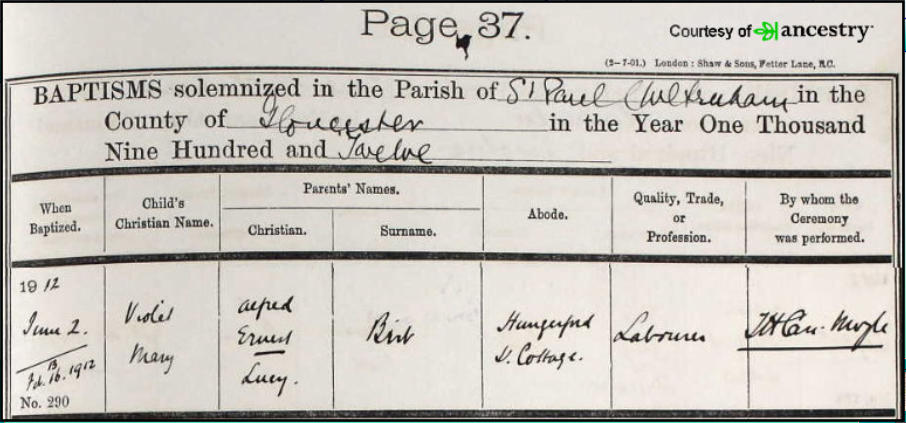 Page 37.
Courtesy of ancestry
(2-7-01.) London: Shaw & Sons, Fetter Lane, E.C.
BAPTISMS solemnized in the Parish of St Paul Cheltenham in the
County of Gloucester in the Year One Thousand
Nine Hundred and Twelve
When Baptized.
Child's Christian Name.
Parents' Names.
Christian.
Surname.
Abode.
Quality, Trade, or Profession.
By whom the Ceremony was performed.
1912
June 2.
Feb. 16. 1912
No. 290
Violet
Mary
Alfred
Ernest
Lucy.
Hungerford
Cottage.
Labourer